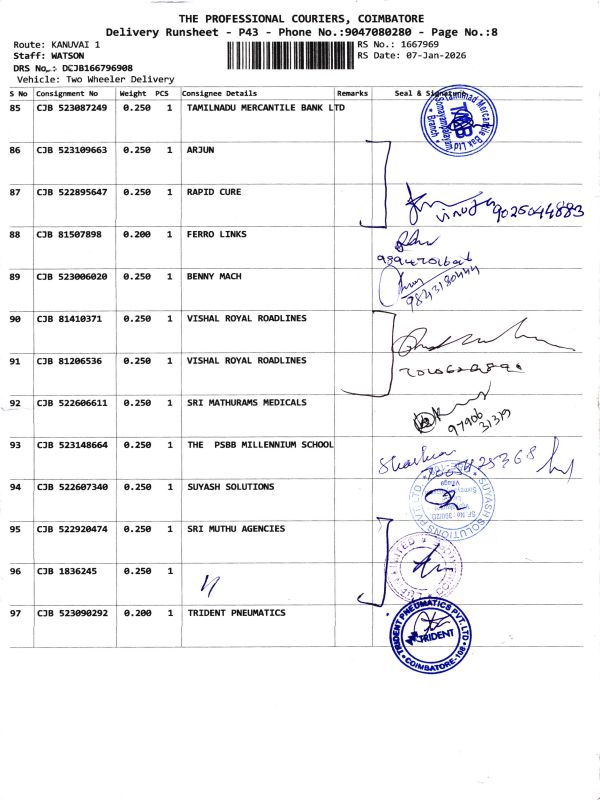 THE PROFESSIONAL COURIERS, COIMBATORE
Delivery Runsheet - P43 - Phone No.:9047080280 - Page No.:8
Route: KANUVAI 1 RS No.: 1667969
Staff: WATSON RS Date: 07-Jan-2026
DRS No.: DCJB166796908
Vehicle: Two Wheeler Delivery
S No Consignment No Weight PCS Consignee Details Remarks Seal & Signature
85 CJB 523087249 0.250 1 TAMILNADU MERCANTILE BANK LTD
86 CJB 523109663 0.250 1 ARJUN
87 CJB 522895647 0.250 1 RAPID CURE
9025044883
88 CJB 81507898 0.200 1 FERRO LINKS
89 CJB 523006020 0.250 1 BENNY MACH
9843180444
90 CJB 81410371 0.250 1 VISHAL ROYAL ROADLINES
91 CJB 81206536 0.250 1 VISHAL ROYAL ROADLINES
92 CJB 522606611 0.250 1 SRI MATHURAMS MEDICALS
97906
31319
93 CJB 523148664 0.250 1 THE PSBB MILLENNIUM SCHOOL
94 CJB 522607340 0.250 1 SUYASH SOLUTIONS
SUYASH SOLUTIONS PVT. LTD.
95 CJB 522920474 0.250 1 SRI MUTHU AGENCIES
96 CJB 1836245 0.250 1
97 CJB 523090292 0.200 1 TRIDENT PNEUMATICS
TRIDENT PNEUMATICS PVT. LTD.
TRIDENT
COIMBATORE-108